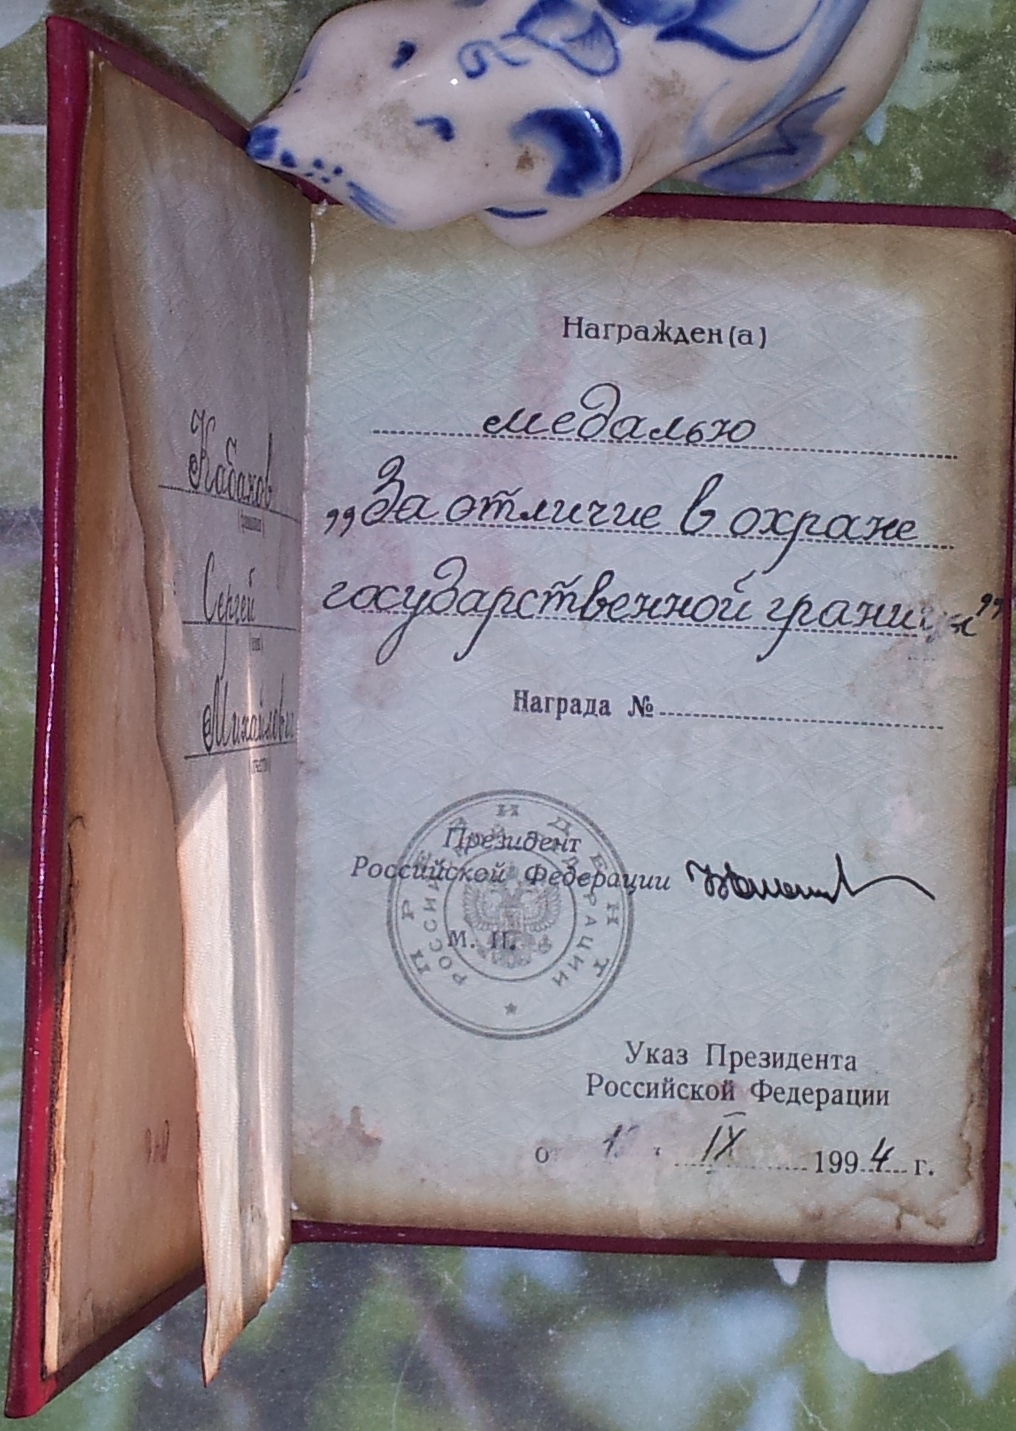 Кабаков
(фамилия)
Сергей
(имя)
Михайлович
(отчество)
Награжден(а)
медалью
„За отличие в охране
государственной границы”
Награда №
ПРЕЗИДЕНТ
РОССИЙСКОЙ ФЕДЕРАЦИИ
Президент
Российской Федерации
М. П.
Указ Президента
Российской Федерации
о IX 1994 г.